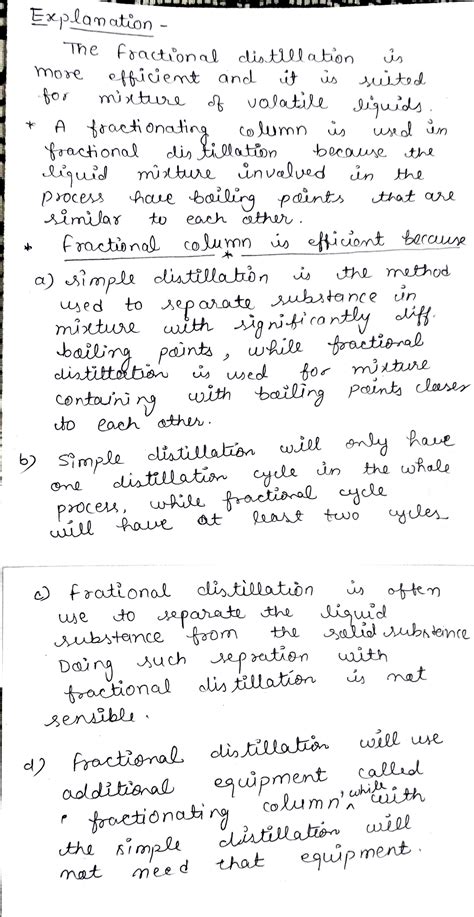 Explanation -
The fractional distillation is
more efficient and it is suited
for mixture of volatile liquids.
* A fractionating column is used in
fractional distillation because the
liquid mixture involved in the
process have boiling points that are
similar to each other.
* Fractional column is efficient because
a) simple distillation is the method
used to separate substance in
mixture with significantly diff.
boiling points, while fractional
distittation is used for mixture
containing with boiling points closer
to each other.
b) Simple distillation will only have
one distillation cycle in the whole
process, while fractional cycle
will have at least two cycles
c) frational distillation is often
use to separate the liquid
substance from the solid substance
Doing such sepration with
fractional distillation is not
sensible.
d) fractional distillation will use
additional equipment called
fractionating column, while with
the simple distillation will
not need that equipment.